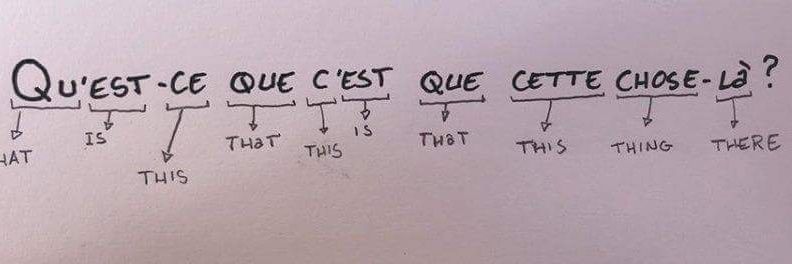 QU'EST-CE QUE C'EST QUE CETTE CHOSE-Là?
HAT IS THIS THAT THIS IS THAT THIS THING THERE